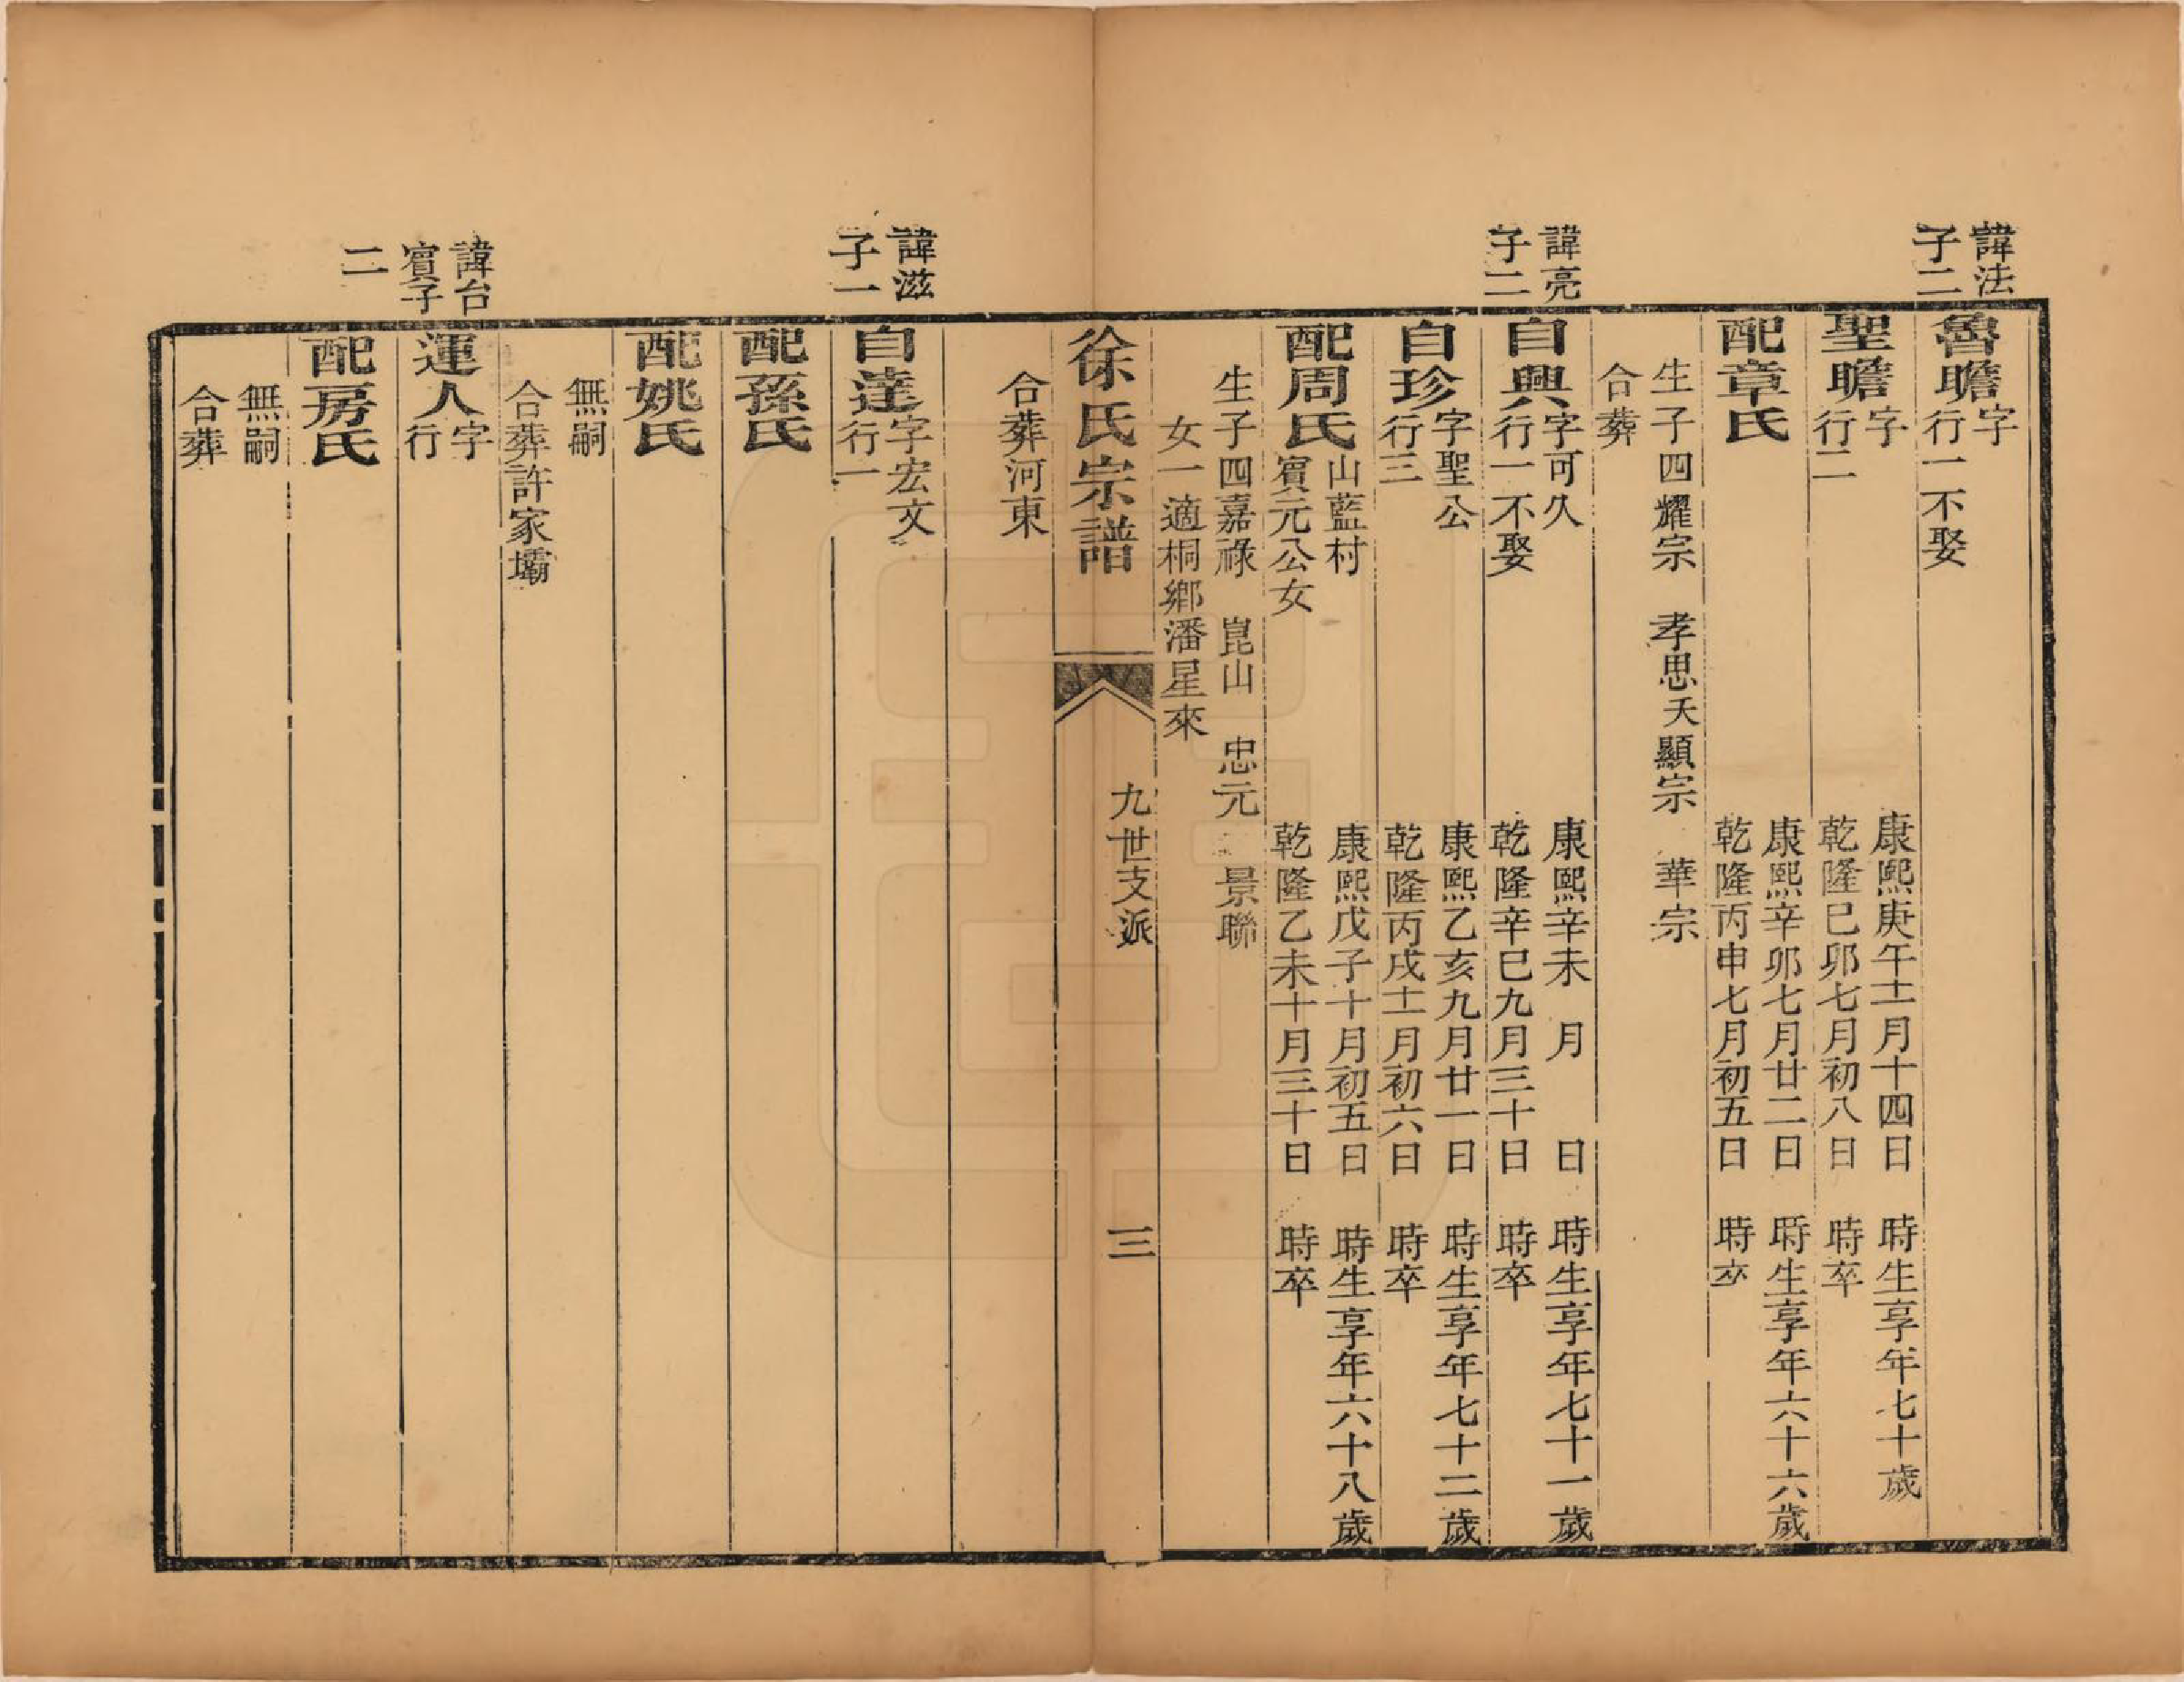 諱法
子二
魯瞻字
行一不娶
聖瞻字
行二
康熙庚午十二月十四日 時生享年七十歲
乾隆己卯七月初八日 時卒
配章氏
康熙辛卯七月廿二日 時生享年六十六歲
乾隆丙申七月初五日 時卒
生子四耀宗 孝思天顯宗 華宗
合葬
諱亮
子二
自興字可久
行一不娶
康熙辛未 月 日 時生享年七十一歲
乾隆辛巳九月三十日 時卒
自珍字聖公
行三
康熙乙亥九月廿一日 時生享年七十二歲
乾隆丙戌十一月初六日 時卒
配周氏山藍村
賓元公女
康熙戊子十月初五日 時生享年六十八歲
乾隆乙未十月三十日 時卒
生子四嘉祿 崑山 忠元 景聯
女一適桐鄉潘星來
徐氏宗譜
九世支派
三
合葬河東
諱滋
子一
自達字宏文
行一
配孫氏
配姚氏
無嗣
合葬許家壩
諱台
賓子
二
運人字
行
配房氏
無嗣
合葬